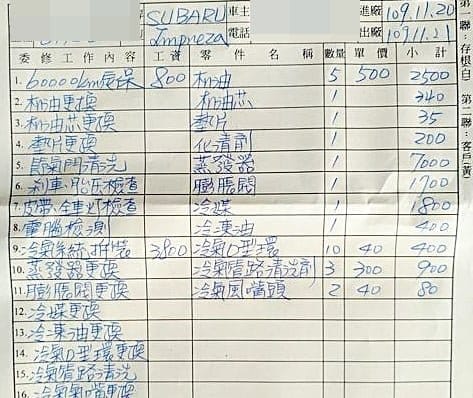 SUBARU 車主 進廠 109.11.20
Impreza 電話 出廠 109.11.21
委修工作內容 工資 零件名稱 數量 單價 小計
1. 60000km保 800 机油 5 500 2500
2. 机油更換 机油芯 1 340
3. 机油芯更換 墊片 1 35
4. 墊片更換 化清劑 1 200
5. 節氣門清洗 蒸發器 1 7000
6. 剎車、胎压檢查 膨脹閥 1 1700
7. 皮帶、全車灯檢查 冷媒 1 1800
8. 電腦檢測 冷凍油 1 400
9. 冷氣系統拆裝 3800 冷氣O型環 10 40 400
10. 蒸發器更換 冷氣管路清洗劑 3 300 900
11. 膨脹閥更換 冷氣風嘴頭 2 40 80
12. 冷媒更換
13. 冷凍油更換
14. 冷氣O型環更換
15. 冷氣管路清洗
16. 冷氣氣嘴更換
第一聯：存根(白) 第二聯：客戶(黃)